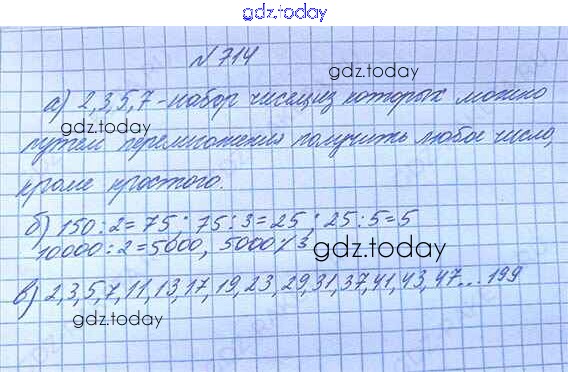 gdz.today
№ 714
gdz.today
а) 2,3,5,7 - набор чисел, из которых можно
gdz.today
путем перемножения получить любое число,
кроме простого.
б) 150:2=75; 75:3=25; 25:5=5
10000:2=5000, 5000⁒3
gdz.today
в) 2,3,5,7,11,13,17,19,23,29,31,37,41,43,47...199
gdz.today